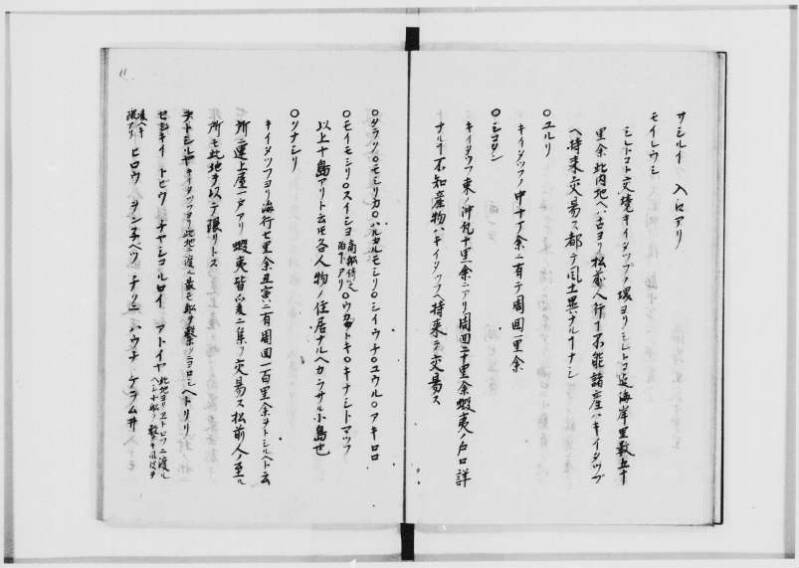 サシルイ 入江アリ
モイレウシ
シレトコト交境キイタツプノ壤ヨリシレトコ迠海岸里数五十
里余此内地ヘハ古ヨリ松前人行7不能諸産ハキイタツプ
ヘ持来交易ス都テ風土異ナルフナシ
○ユルリ
キイタツフノ中十丁余ニ有テ周囲一里余
○シコタン
キイタツフ東ノ沖凡十里余ニアリ周囲二十里余蝦夷ノ戸口詳
ナルフ不知産物ハキイタツフヘ持来テ交易ス
○タラソ○モシリカ○ハルカルモシリ○シイウナ○ユウル○アキロロ
○モイモシリ○スイシヨ ○ウカヲトキ○キナシトマツフ
以上十島アリト云モ各人物ノ住居ナルヘカラサル小島也
○ツナシリ
キイタツフヨリ海行七里余丑寅ニ有周囲一百里余ヲトシルヘト云
所ニ運上屋一タアリ蝦夷皆此処ニ集リ交易ス松前人ノ至ル
所モ此地ヲ以テ限リトス
ヲトシルヤ キイタツフヨリ此地ニ渡ル最モ船ヲ繋クニヨロシ ヘトリリ
セシキイ トビウ チヤシコルロイ アトイヤ 此地ヨリヱトロツニ渡ル
ヒロウ ヲン子ベツ チリニ ハウチ ケラム井